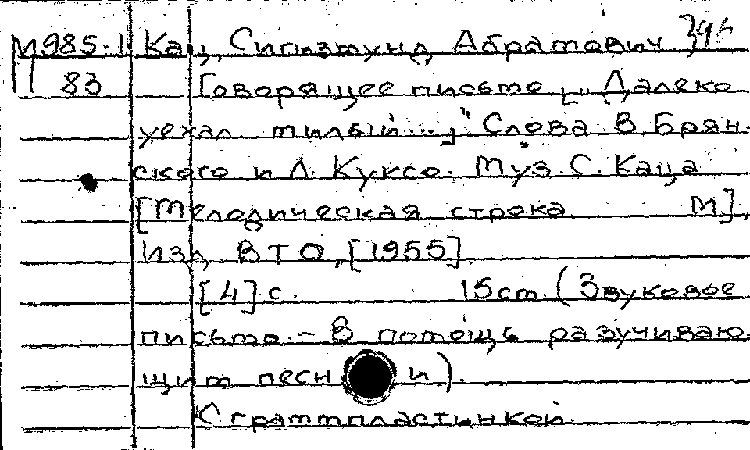 М985-1 Кац, Сигизмунд Абрамович
83 Говорящее письмо. [„Далеко
уехал милый...". Слова В. Брян-
ского и Л. Куксо. Муз. С. Каца
[Мелодическая строка. М],
Изд. ВТО, [1955].
[4] с. 15 см. (Звуковое
письмо. - В помощь разучиваю-
щим песни).
С граммпластинкой.